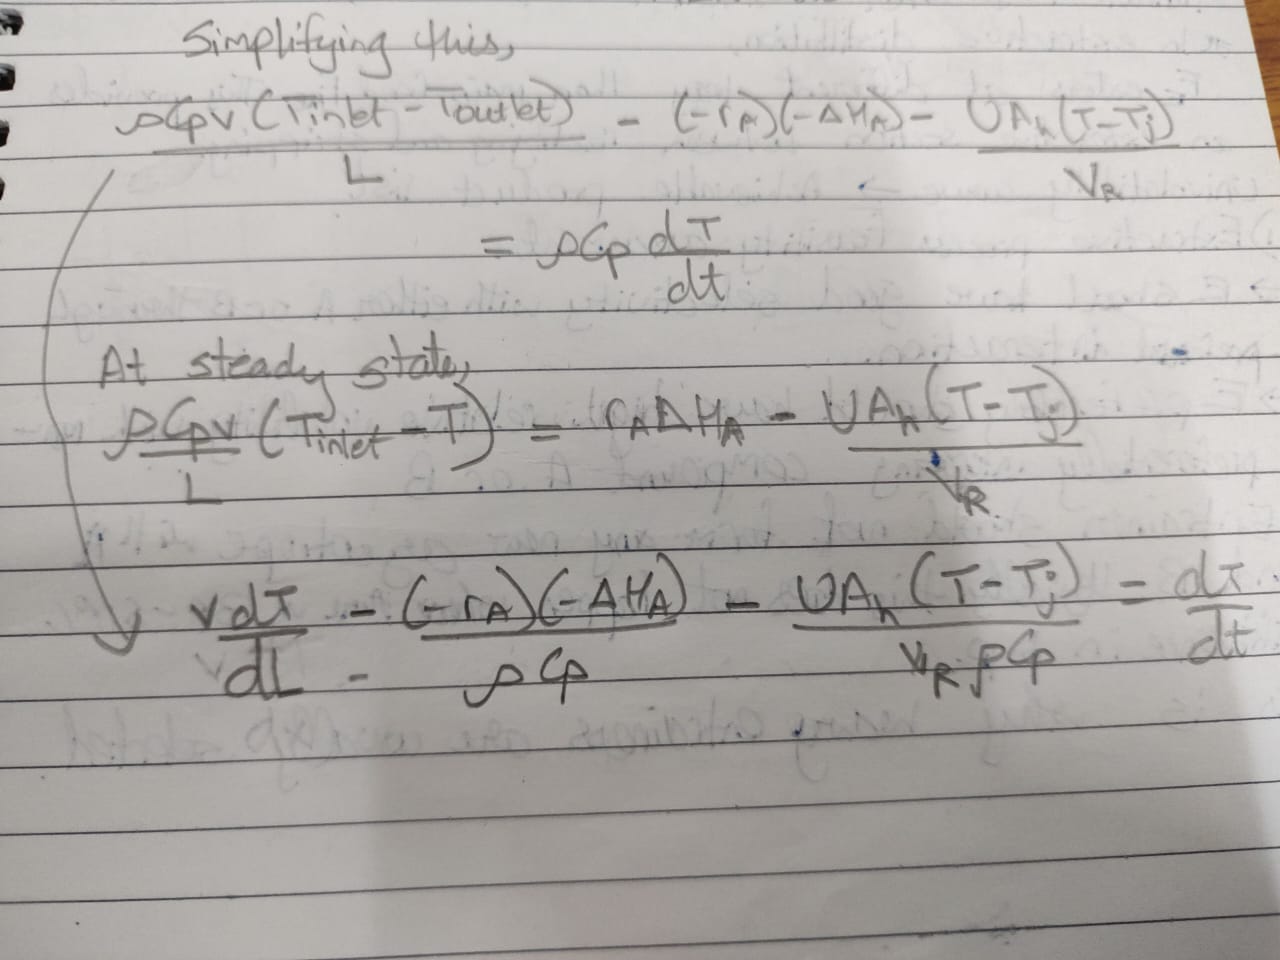 Simplifying this,
ρCpv (Tinlet - Toutlet) / L - (-rA)(-ΔHA) - UAh (T-Tj) / VR
= ρCp dT/dt
At steady state,
ρCpv / L (Tinlet - T) = rAΔHA - UAh (T-Tj) / VR
v dT/dL - (-rA)(-ΔHA) / ρCp - UAh (T-Tj) / VR ρCp = dT/dt